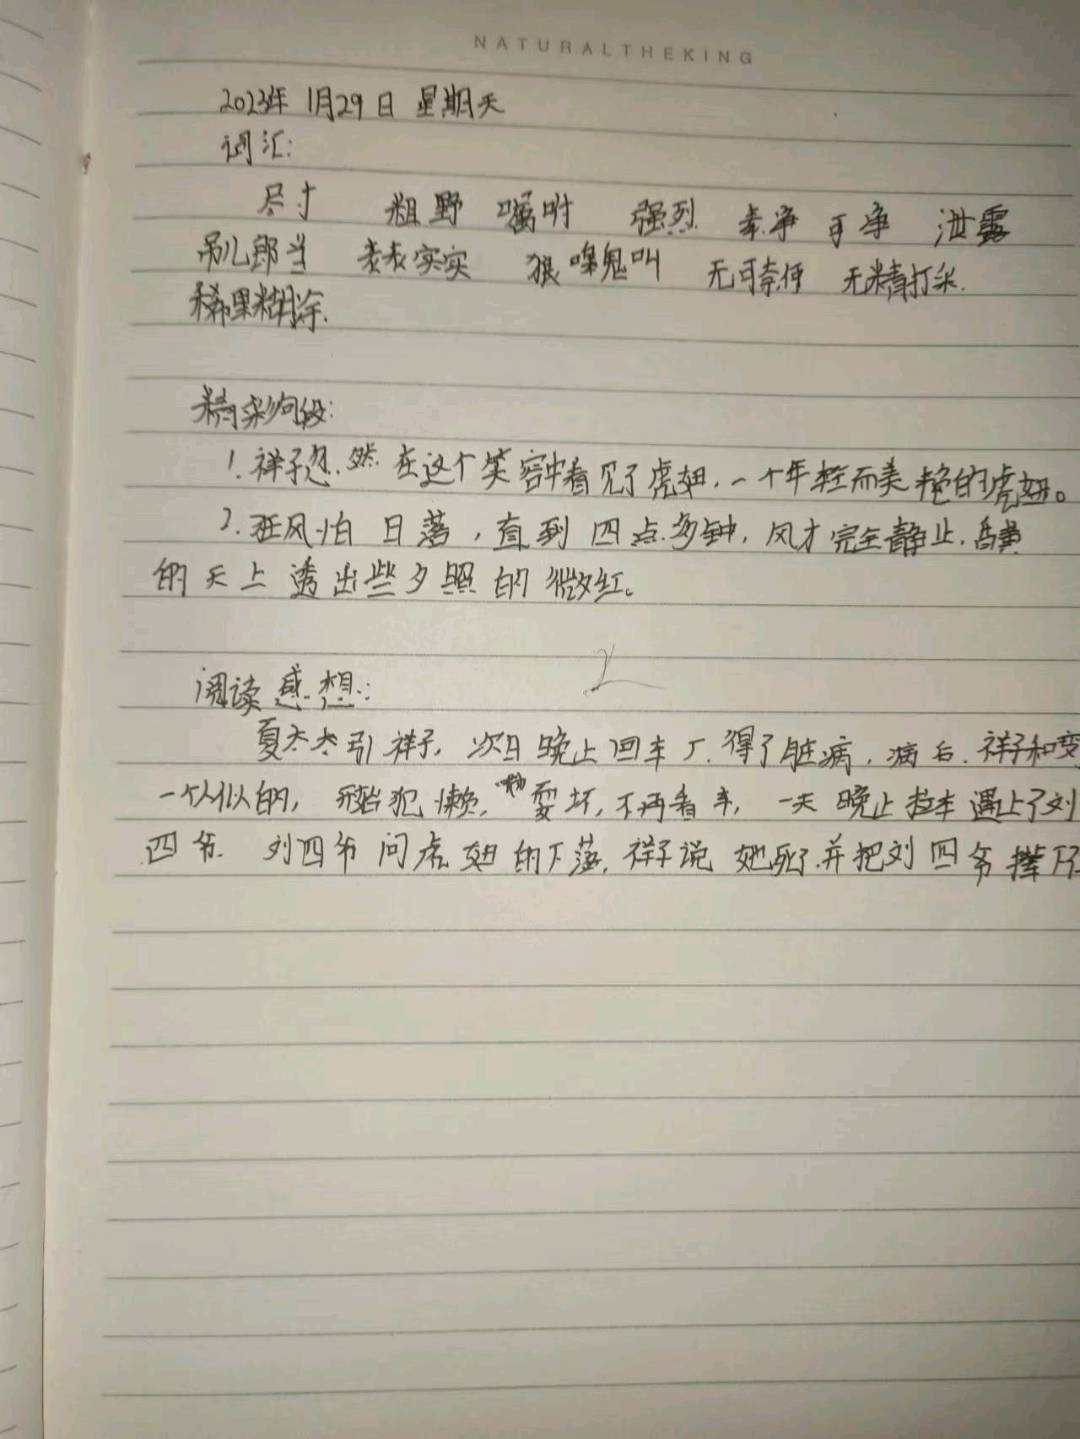 NATURALTHEKING
2023年 1月29日 星期天
词汇:
尺寸 粗野 嘱咐 强烈 素净 干净 泄露
吊儿郎当 表表实实 狼嗥鬼叫 无可奈何 无精打采.
稀里糊涂.
精彩句段:
1.祥子忽然在这个笑容中看见了虎妞,一个年轻而美艳的虎妞。
2.狂风怕日落,直到四点多钟,风才完全静止,昏黄
的天上透出些夕照的微红。
阅读感想:
夏太太引祥子,次日晚上回车厂.得了脏病,病后.祥子和变
一个人似的,开始犯懒, 耍坏,不再看车,一天晚上拉车遇上了刘
四爷.刘四爷问虎妞的下落,祥子说她死了.并把刘四爷撵下